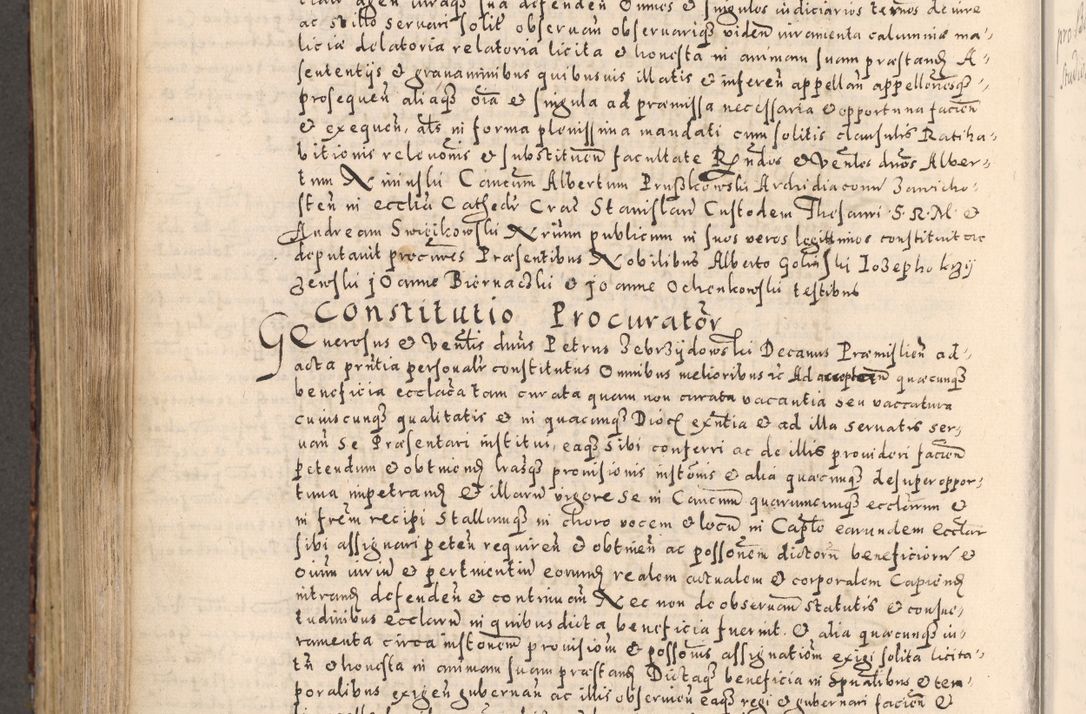 ac stillo servari solit observan observariq viden iuramenta calumniæ ma-
liciæ delatoria relatoria licita et honesta in animam suam præstand A-
sententijs et gravaminibus quibusvis illatis et inferen appellan appellonesq
prosequen aliaq oia et singula ad præmissa necessaria et opportuna facien
et exequen, als in forma plenissima mandati cum solitis clausulis Ratiha-
bitionis relevonis et substituen facultate Rndos et Venles dnos Alber-
tum Niminski Cancum Albertum Pruszkowski Archidiaconu Zawicho-
sten in ecclia Cathedr Crac Stanislau Custodem Thesauri S.R.M. et
Andream Swięcikowski Nrium publicum in suos veros legittimos constituit ac
deputavit procures Præsentibus Nobilibus Alberto Golinski Iosepho krzy
żewski joanne Biernacki et joanne Ochenkowski testibus
Constitutio Procurator
Generosus et Venlis dnus Petrus Zebrzydowski Decanus Præmislien ad
acta pntia personalr constitutus Omnibus melioribus etc Ad acceptan quæcunq
beneficia ecclaca tam curata quam non curata vacantia seu vaccatura
cuiuscunq qualitatis et in quacunq Dioc exntia et ad illa servatis ser-
van se Præsentari institui, eaq sibi conferri ac de illis provideri facien
petendum et obtinend lrasq provisionis instonis et alia quæcunq desuper oppor-
tuna impetrand et illaru vigore se in Cancum quarumcunq eccliarum et
in frem recipi Stallumq in choro vocem et locu in Caplo earundem Ecclar
sibi assignari peten requiren et obtinen ac possonem dictoru beneficioru et
oium iuriu et pertinentiu eorund realem actualem et corporalem Capiend
intrand defenden et continuan Nec non de observan statutis et consue-
tudinibus ecclaru in quibus dicta beneficia fuerint. Et alia quæcunq iu-
ramenta circa instonem provisiom et possonis assignatiom exigi solita licita-
ta et honesta in animam suam præstand Dictaq beneficia in spualibus et tem
poralibus exigen gubernan ac illis observien eaq regi et gubernari facien et